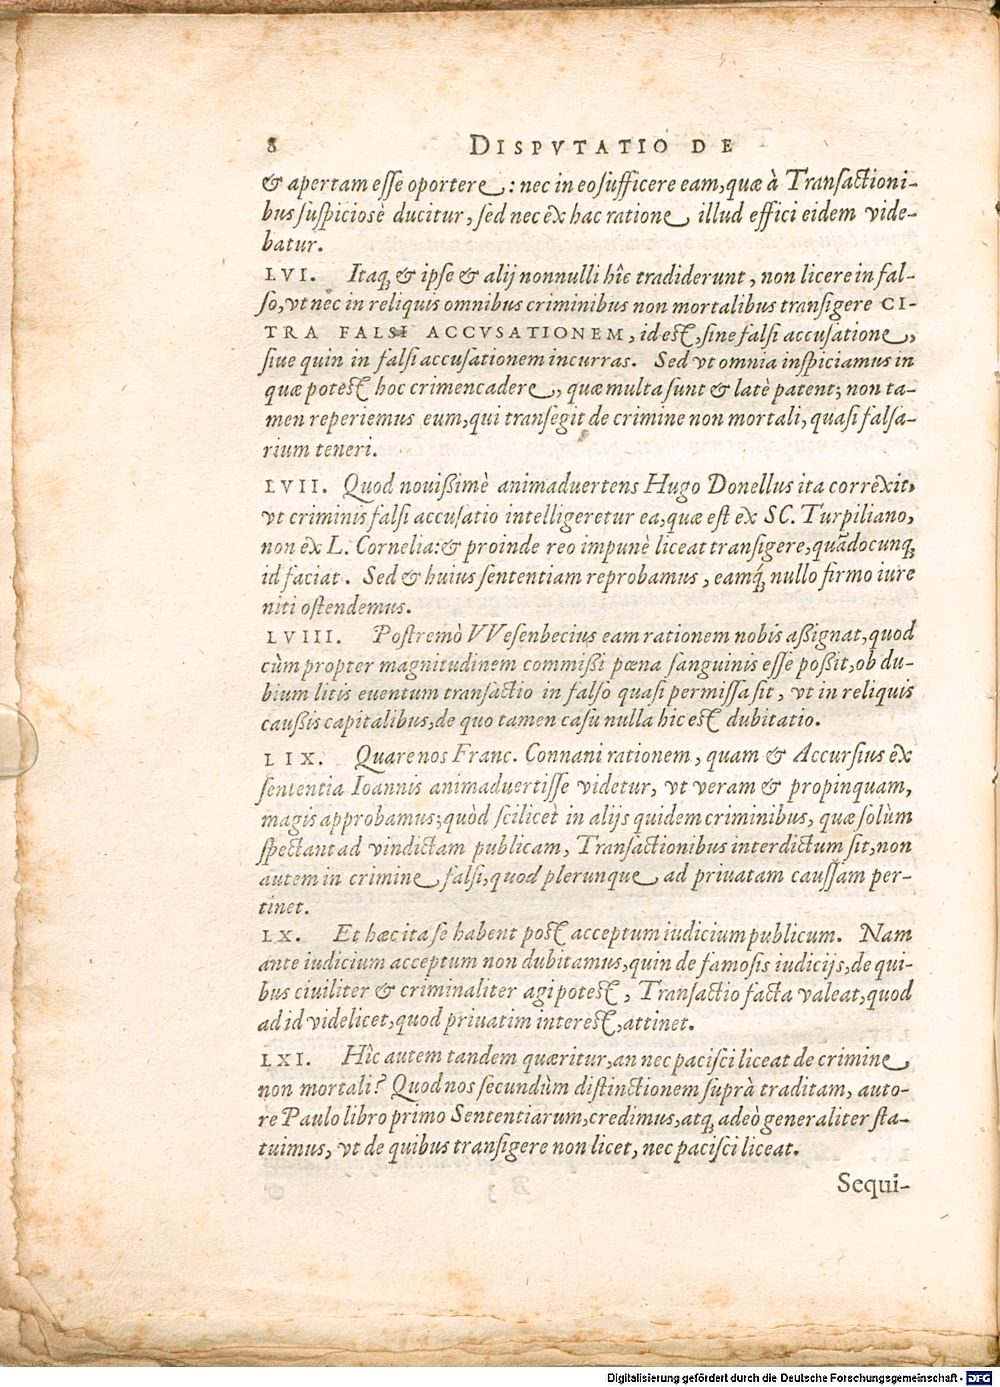 8 DISPVTATIO DE
& apertam esse oportere: nec in eo sufficere eam, quæ à Transactioni-
bus suspiciosè ducitur, sed nec ex hac ratione illud effici eidem vide-
batur.
LVI. Itaq; & ipse & alij nonnulli hîc tradiderunt, non licere in fal-
so, vt nec in reliquis omnibus criminibus non mortalibus transigere CI-
TRA FALSI ACCVSATIONEM, id est, sine falsi accusatione,
siue quin in falsi accusationem incurras. Sed vt omnia inspiciamus in
quæ potest hoc crimen cadere, quæ multa sunt & latè patent; non ta-
men reperiemus eum, qui transegit de crimine non mortali, quasi falsa-
rium teneri.
LVII. Quod nouißimè animaduertens Hugo Donellus ita correxit,
vt criminis falsi accusatio intelligeretur ea, quæ est ex SC. Turpiliano,
non ex L. Cornelia: & proinde reo impunè liceat transigere, quãdocunq;
id faciat. Sed & huius sententiam reprobamus, eamq́; nullo firmo iure
niti ostendemus.
LVIII. Postremò VVesenbecius eam rationem nobis aßignat, quod
cùm propter magnitudinem commißi pœna sanguinis esse poßit, ob du-
bium litis euentum transactio in falso quasi permissa sit, vt in reliquis
caußis capitalibus, de quo tamen casu nulla hic est dubitatio.
LIX. Quare nos Franc. Connani rationem, quam & Accursius ex
sententia Ioannis animaduertisse videtur, vt veram & propinquam,
magis approbamus; quòd scilicet in alijs quidem criminibus, quæ solùm
spectant ad vindictam publicam, Transactionibus interdictum sit, non
autem in crimine falsi, quod plerunque ad priuatam caussam per-
tinet.
LX. Et hæc ita se habent post acceptum iudicium publicum. Nam
ante iudicium acceptum non dubitamus, quin de famosis iudicijs, de qui-
bus ciuiliter & criminaliter agi potest, Transactio facta valeat, quod
ad id videlicet, quod priuatim interest, attinet.
LXI. Hîc autem tandem quæritur, an nec pacisci liceat de crimine
non mortali? Quod nos secundùm distinctionem suprà traditam, auto-
re Paulo libro primo Sententiarum, credimus, atq; adeò generaliter sta-
tuimus, vt de quibus transigere non licet, nec pacisci liceat.
Sequi-
Digitalisierung gefördert durch die Deutsche Forschungsgemeinschaft - DFG